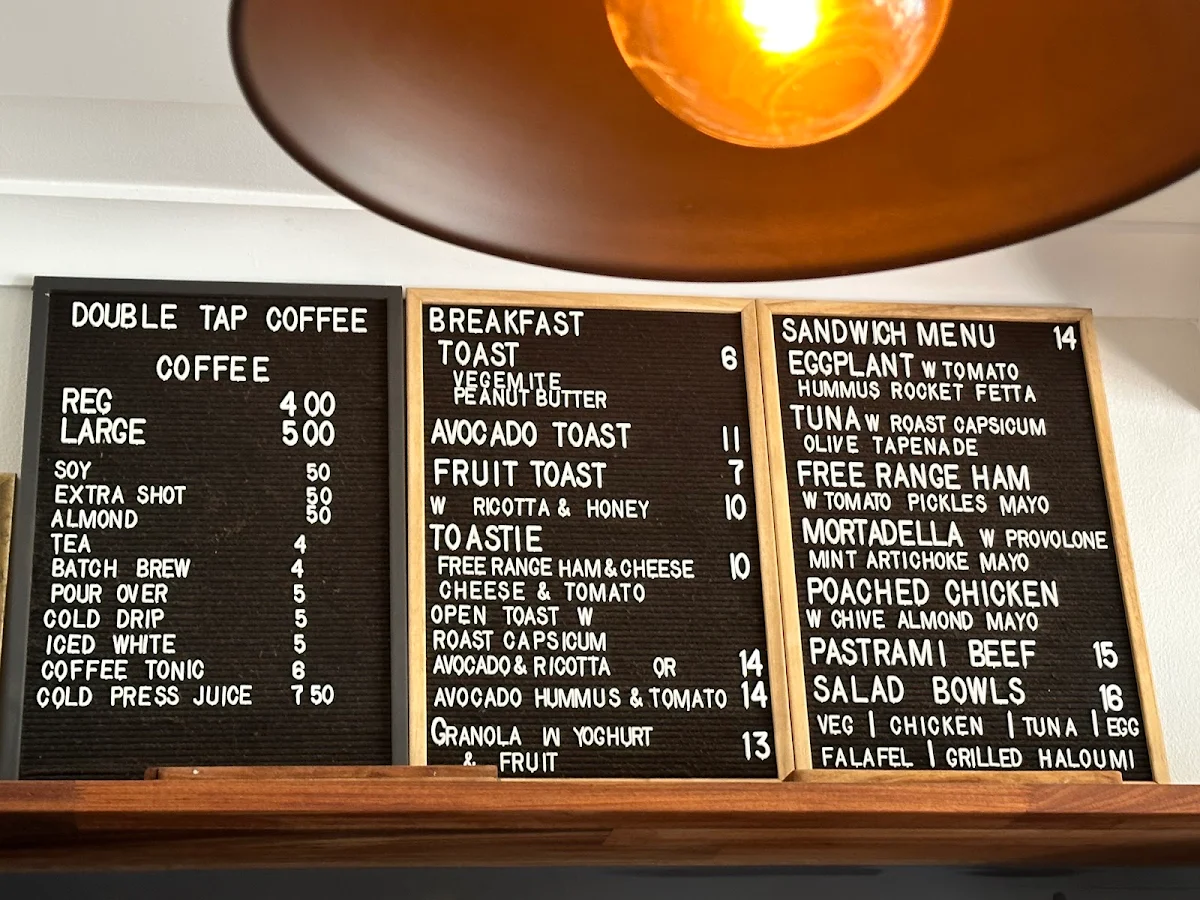 DOUBLE TAP COFFEE
COFFEE
REG 4 00
LARGE 5 00
SOY 50
EXTRA SHOT 50
ALMOND 50
TEA 4
BATCH BREW 4
POUR OVER 5
COLD DRIP 5
ICED WHITE 5
COFFEE TONIC 6
COLD PRESS JUICE 7 50
BREAKFAST
TOAST 6
VEGEMITE
PEANUT BUTTER
AVOCADO TOAST 11
FRUIT TOAST 7
W RICOTTA & HONEY 10
TOASTIE
FREE RANGE HAM & CHEESE 10
CHEESE & TOMATO
OPEN TOAST W
ROAST CAPSICUM
AVOCADO & RICOTTA OR 14
AVOCADO HUMMUS & TOMATO 14
GRANOLA W YOGHURT 13
& FRUIT
SANDWICH MENU 14
EGGPLANT W TOMATO
HUMMUS ROCKET FETTA
TUNA W ROAST CAPSICUM
OLIVE TAPENADE
FREE RANGE HAM
W TOMATO PICKLES MAYO
MORTADELLA W PROVOLONE
MINT ARTICHOKE MAYO
POACHED CHICKEN
W CHIVE ALMOND MAYO
PASTRAMI BEEF 15
SALAD BOWLS 16
VEG | CHICKEN | TUNA | EGG
FALAFEL | GRILLED HALOUMI